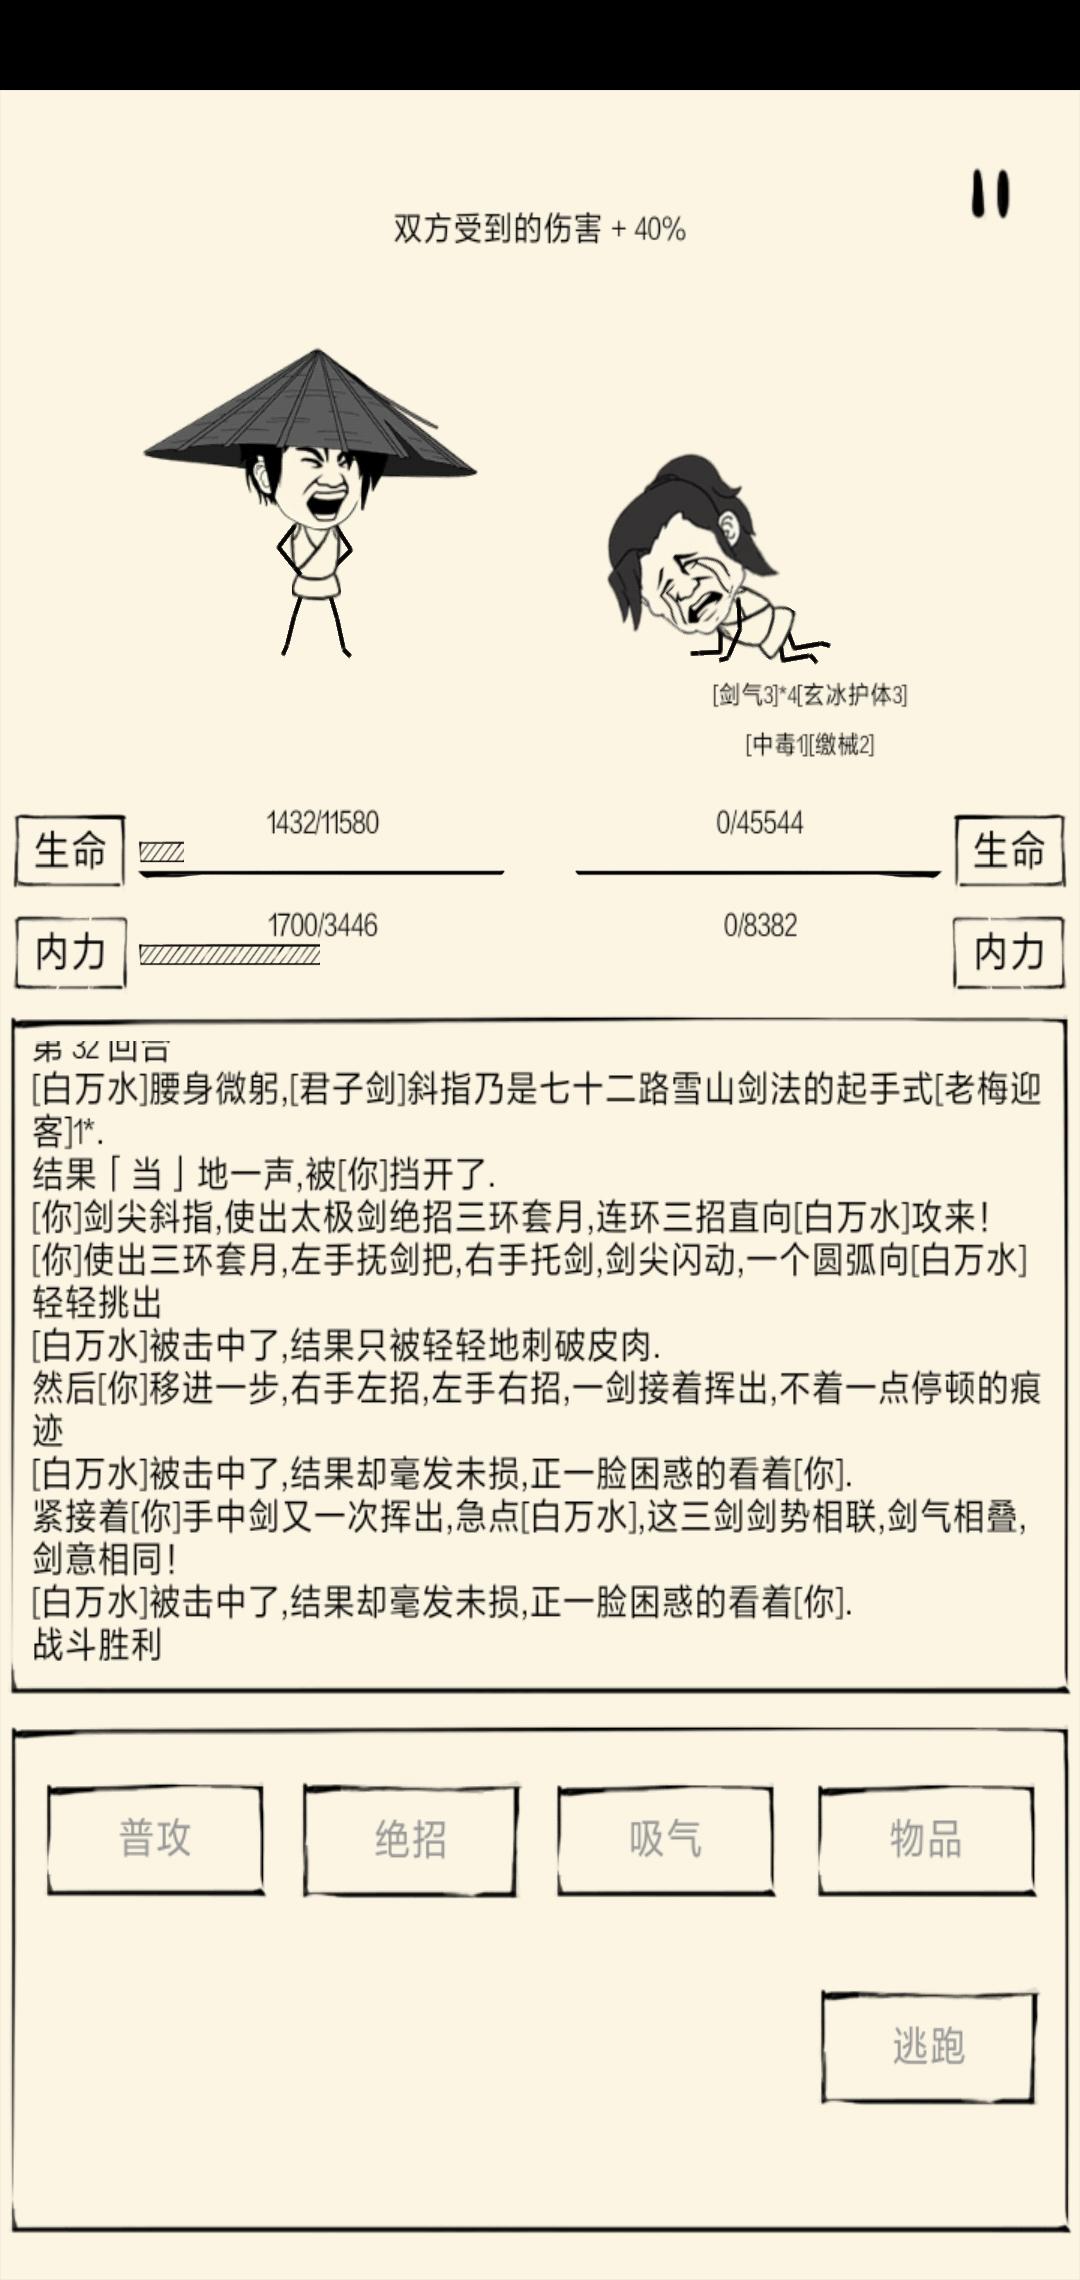 双方受到的伤害 + 40%
[剑气3]*4[玄冰护体3]
[中毒1][缴械2]
生命
1432/11580
0/45544
生命
内力
1700/3446
0/8382
内力
第 32 回合
[白万水]腰身微躬,[君子剑]斜指乃是七十二路雪山剑法的起手式[老梅迎
客]1*.
结果「当」地一声,被[你]挡开了.
[你]剑尖斜指,使出太极剑绝招三环套月,连环三招直向[白万水]攻来！
[你]使出三环套月,左手抚剑把,右手托剑,剑尖闪动,一个圆弧向[白万水]
轻轻挑出
[白万水]被击中了,结果只被轻轻地刺破皮肉.
然后[你]移进一步,右手左招,左手右招,一剑接着挥出,不着一点停顿的痕
迹
[白万水]被击中了,结果却毫发未损,正一脸困惑的看着[你].
紧接着[你]手中剑又一次挥出,急点[白万水],这三剑剑势相联,剑气相叠,
剑意相同！
[白万水]被击中了,结果却毫发未损,正一脸困惑的看着[你].
战斗胜利
普攻
绝招
吸气
物品
逃跑